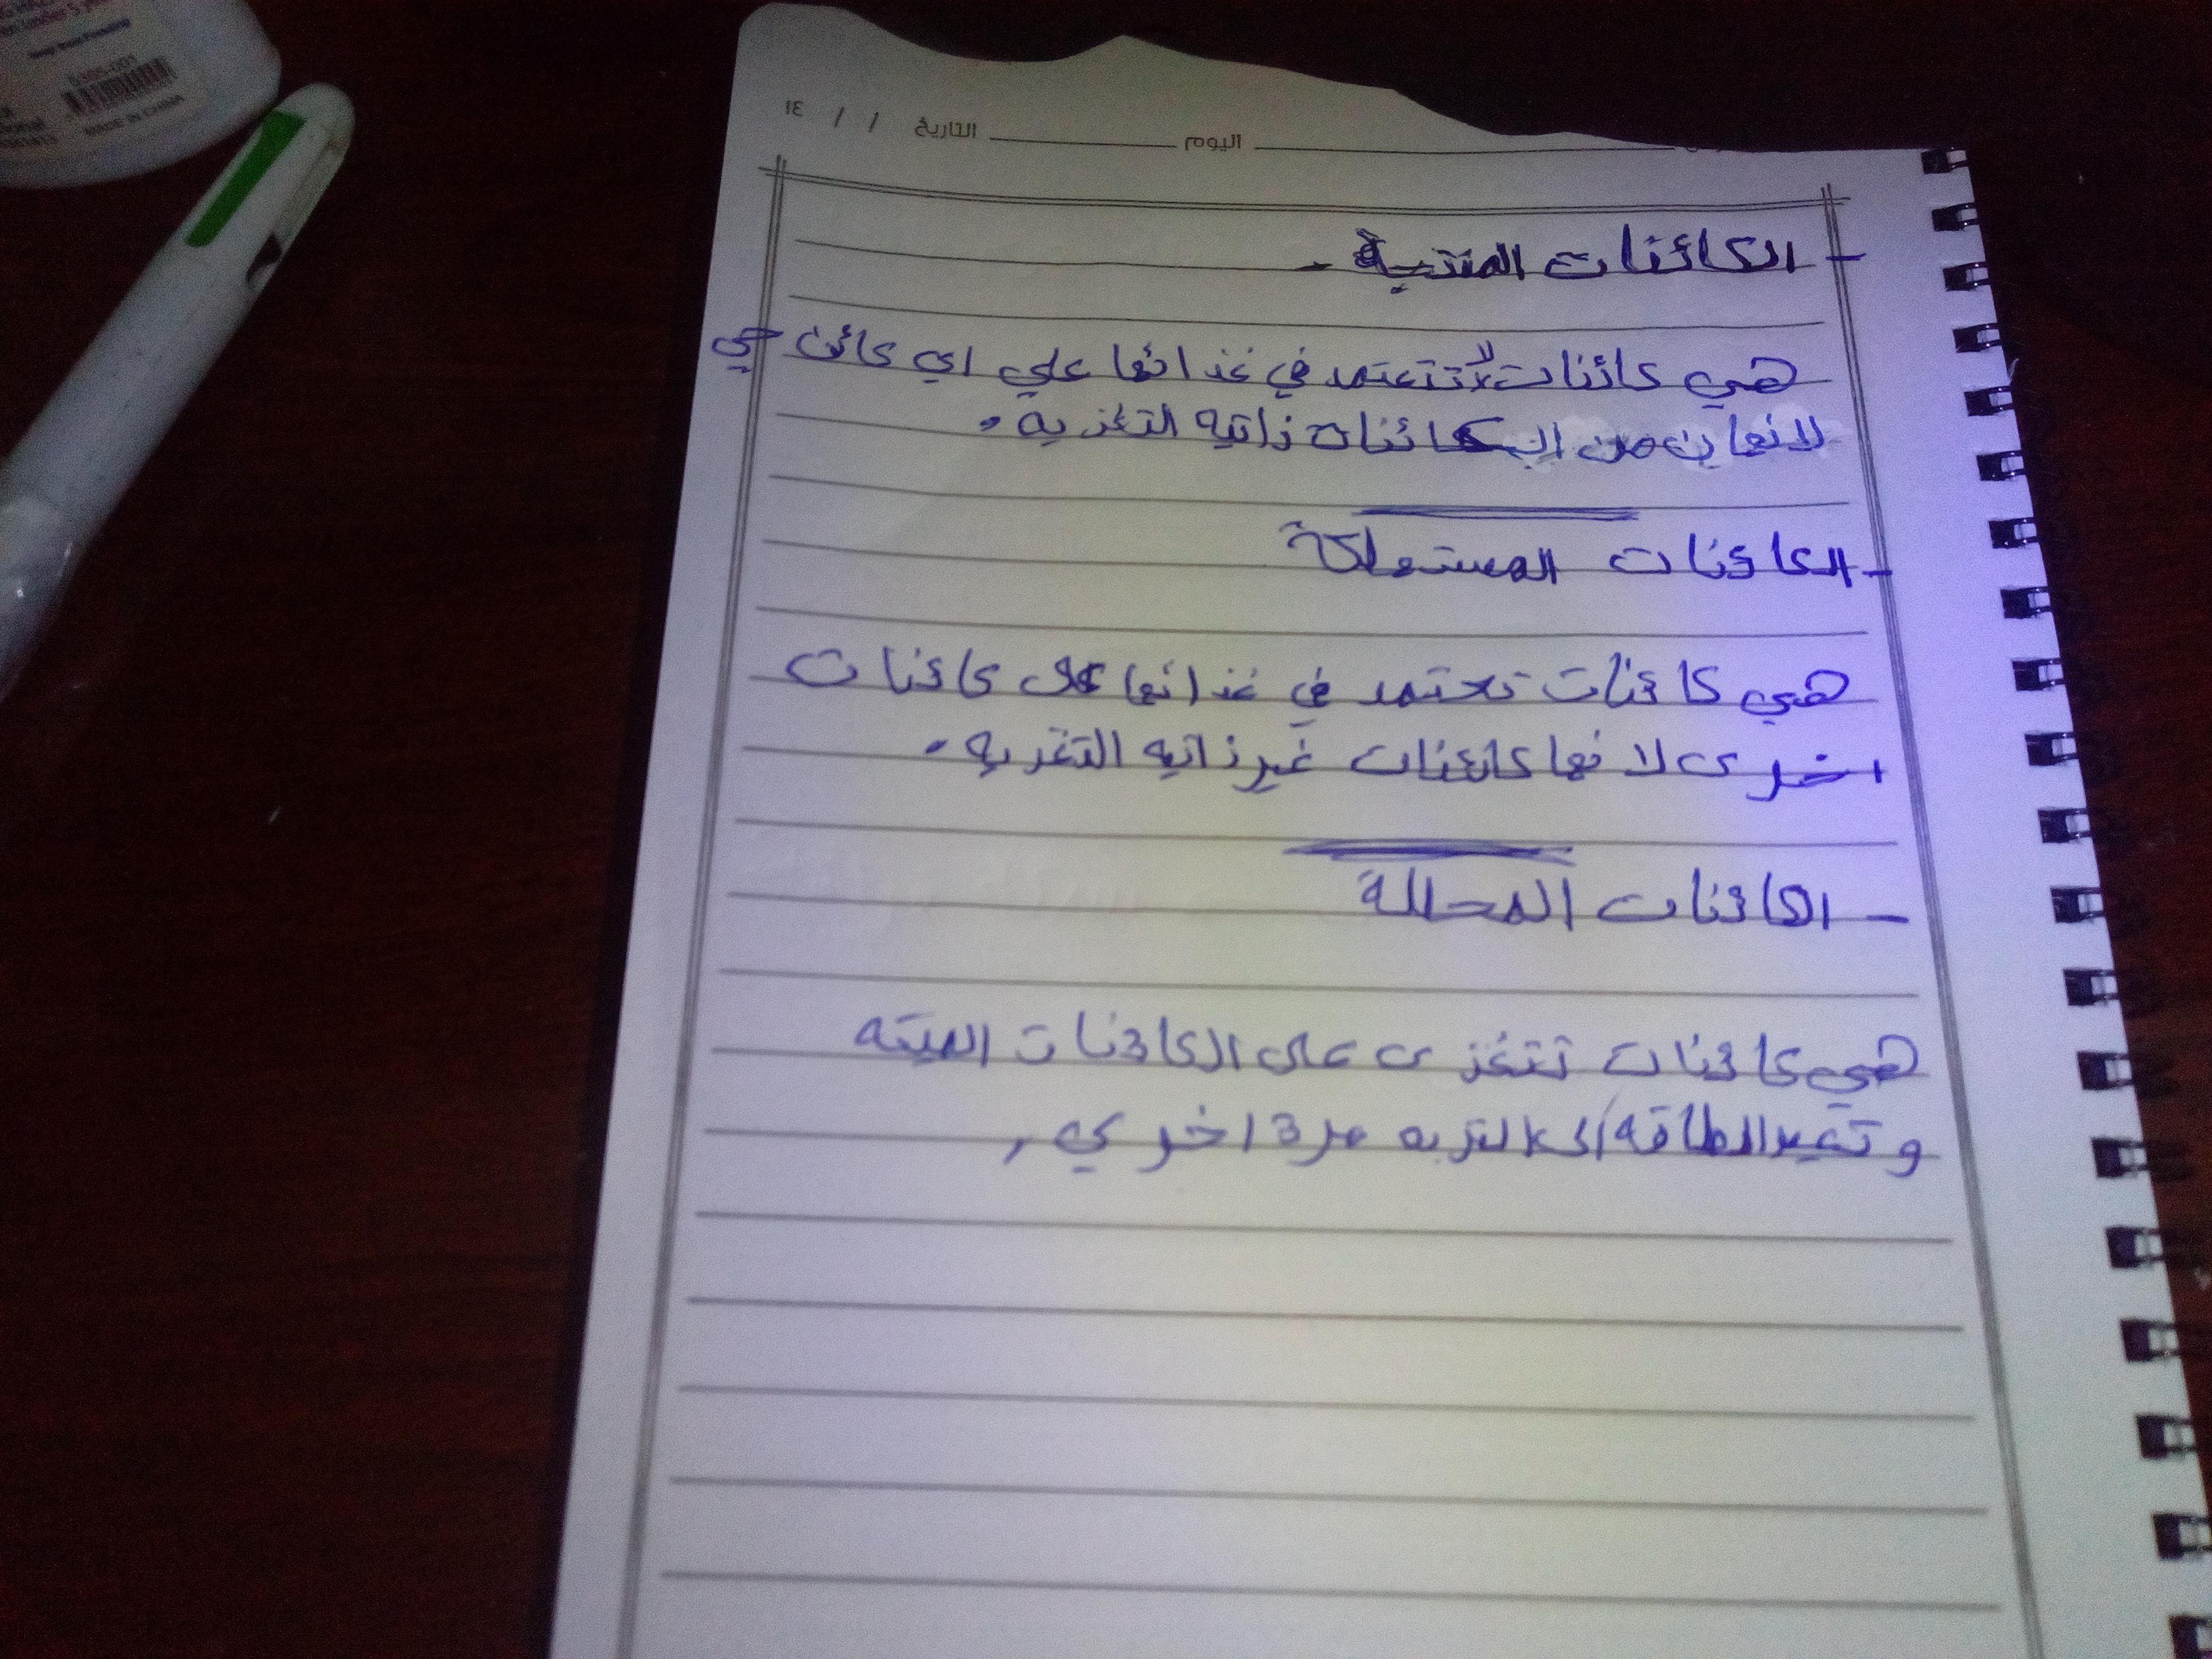 اليوم التاريخ / / ١٤
- الكائنات المنتجة -
هي كائنات لا تعتمد في غذائها علي اي كائن حي
لانها من الكائنات ذاتيه التغذيه.
- الكائنات المستهلكة
هي كائنات تعتمد في غذائها على كائنات
اخرى لانها كائنات غير ذاتيه التغذيه.
- الكائنات المحللة
هي كائنات تتغذى على الكائنات الميته
وتعيد الطاقه الى التربه مرة اخري,
MADE IN CHINA